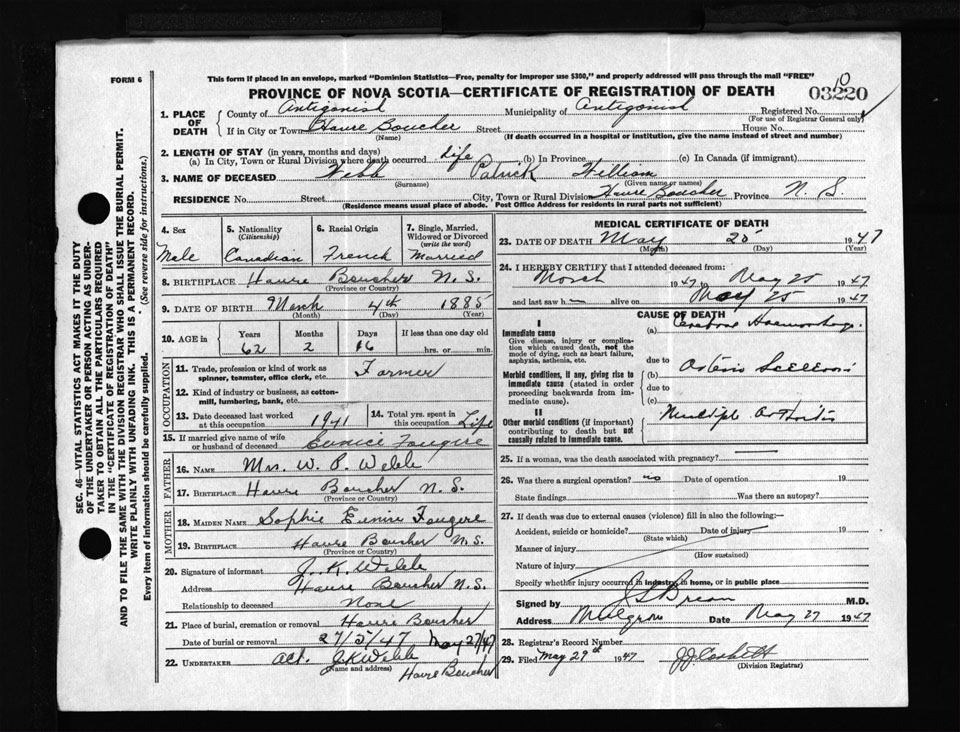 FORM 6
This form if placed in an envelope, marked "Dominion Statistics—Free, penalty for improper use $300," and properly addressed will pass through the mail "FREE"
PROVINCE OF NOVA SCOTIA—CERTIFICATE OF REGISTRATION OF DEATH
03220
10
1. PLACE OF DEATH
County of Antigonish Municipality of Antigonish Registered No.
(For use of Registrar General only)
If in City or Town Havre Boucher Street House No.
(Name) (If death occurred in a hospital or institution, give the name instead of street and number)
2. LENGTH OF STAY (in years, months and days)
(a) In City, Town or Rural Division where death occurred Life (b) In Province (c) In Canada (if immigrant)
3. NAME OF DECEASED Webb Patrick William
(Surname) (Given name or names)
RESIDENCE No. Street City, Town or Rural Division Havre Boucher Province N. S.
(Residence means usual place of abode. Post Office Address for residents in rural parts not sufficient)
4. Sex
Male
5. Nationality (Citizenship)
Canadian
6. Racial Origin
French
7. Single, Married, Widowed or Divorced (write the word)
Married
8. BIRTHPLACE Havre Boucher N. S.
(Province or Country)
9. DATE OF BIRTH March 4th 1885
(Month) (Day) (Year)
10. AGE in Years Months Days If less than one day old
62 2 16 hrs. or min.
OCCUPATION
11. Trade, profession or kind of work as spinner, teamster, office clerk, etc. Farmer
12. Kind of industry or business, as cotton-mill, lumbering, bank, etc.
13. Date deceased last worked at this occupation 1941
14. Total yrs. spent in this occupation Life
15. If married give name of wife or husband of deceased Eunice Fougere
FATHER
16. NAME Mrs. W. P. Webb
17. BIRTHPLACE Havre Boucher N. S.
(Province or Country)
MOTHER
18. MAIDEN NAME Sophie Fougere
19. BIRTHPLACE Havre Boucher N. S.
(Province or Country)
20. Signature of informant J. K. Webb
Address Havre Boucher N. S.
Relationship to deceased
21. Place of burial, cremation or removal Havre Boucher
Date of burial or removal 27/5/47 May 27/47
22. UNDERTAKER act. J K Webb
(Name and address) Havre Boucher
MEDICAL CERTIFICATE OF DEATH
23. DATE OF DEATH May 25 1947
(Month) (Day) (Year)
24. I HEREBY CERTIFY that I attended deceased from:
March 1947 to May 25 1947
and last saw h alive on May 25 1947
CAUSE OF DEATH
I
Immediate cause
Give disease, injury or complication which caused death, not the mode of dying, such as heart failure, asphyxia, asthenia, etc.
(a) Cerebral Haemorrhage
due to
Morbid conditions, if any, giving rise to immediate cause (stated in order proceeding backwards from immediate cause)
(b)
due to
(c)
II
Other morbid conditions (if important) contributing to death but not causally related to immediate cause.
25. If a woman, was the death associated with pregnancy?
26. Was there a surgical operation? no Date of operation 19
State findings Was there an autopsy?
27. If death was due to external causes (violence) fill in also the following—
Accident, suicide or homicide? Date of injury 19
(State which)
Manner of injury
(How sustained)
Nature of injury
Specify whether injury occurred in industry, in home, or in public place
Signed by M.D.
Address Mulgrave Date May 27 1947
28. Registrar's Record Number
29. Filed May 29th 1947 J J Corbett
(Division Registrar)
SEC. 46—VITAL STATISTICS ACT MAKES IT THE DUTY
OF THE UNDERTAKER OR PERSON ACTING AS UNDER-
TAKER TO OBTAIN ALL THE PARTICULARS REQUIRED
IN THE "CERTIFICATE OF REGISTRATION OF DEATH"
AND TO FILE THE SAME WITH THE DIVISION REGISTRAR WHO SHALL ISSUE THE BURIAL PERMIT.
WRITE PLAINLY WITH UNFADING INK. THIS IS A PERMANENT RECORD.
Every item of information should be carefully supplied. (See reverse side for instructions.)